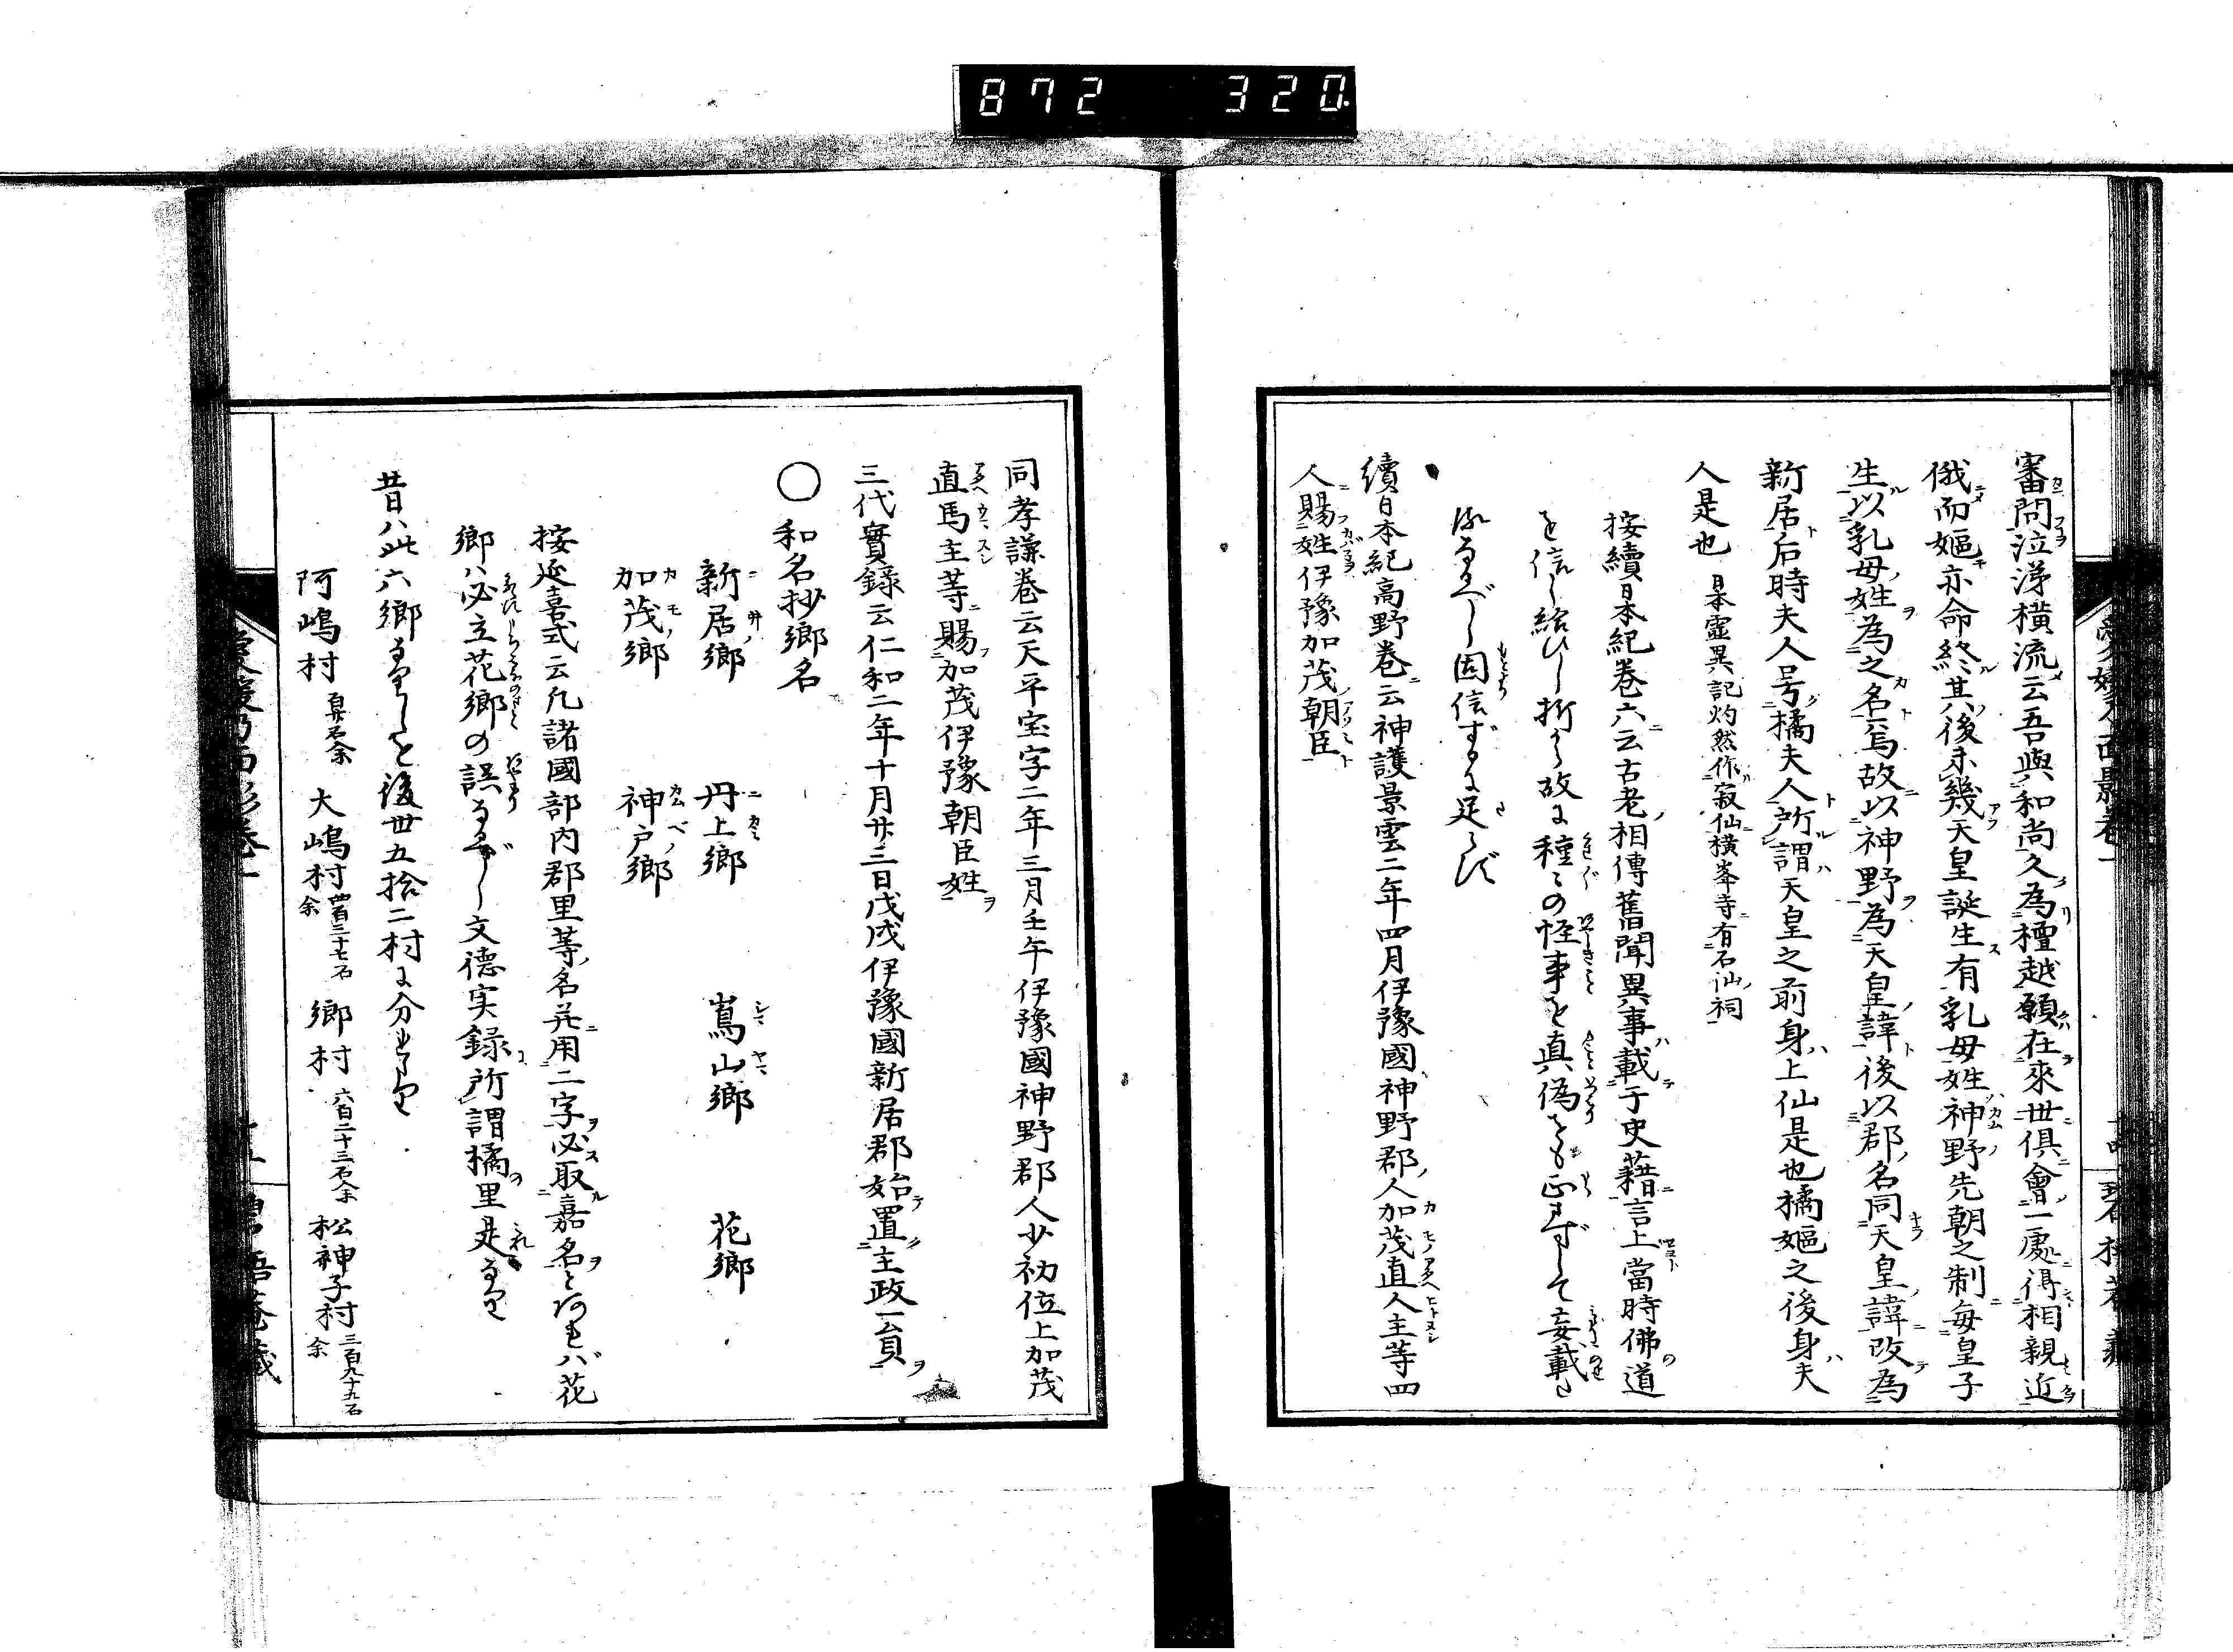 872 320
審問泣涕横流云吾與和尚久為檀越願在來世俱會一處得相親近
俄而嫗亦命終其後未幾天皇誕生有乳母姓神野先朝之制毎皇子
生以乳母姓為之名焉故以神野為天皇諱後以郡名同天皇諱改為
新居后時夫人号橘夫人所謂天皇之前身上仙是也橘嫗之後身夫
人是也 日本霊異記灼然作寂仙横峯寺有石仙祠
按續日本紀巻六云古老相傳舊聞異事載于史藉言上當時佛道
を信じ給ひし折から故に種々の怪事を真偽をも正さずして妄載さ
れ因信ずるに足らず
續日本紀高野巻云神護景雲二年四月伊豫國神野郡人加茂直人主等四
人賜姓伊豫加茂朝臣
同孝謙巻云天平宝字二年三月壬午伊豫國神野郡人少初位上加茂
直馬主等賜加茂伊豫朝臣姓
三代實録云仁和二年十月廿三日戊戌伊豫國新居郡始置主政一員
○和名抄郷名
新居郷 丹上郷 嶌山郷 花郷
加茂郷 神戸郷
按延喜式云凡諸國部内郡里等名並用二字必取嘉名とあれバ花
郷ハ必立花郷の誤なるべし文德実録所謂橘里是なり
昔ハ此六郷なりしを後世五拾二村に分れたり
阿嶋村 大嶋村 四百三十七石余 郷村 六百二十三石余 松神子村 三百九十九石余